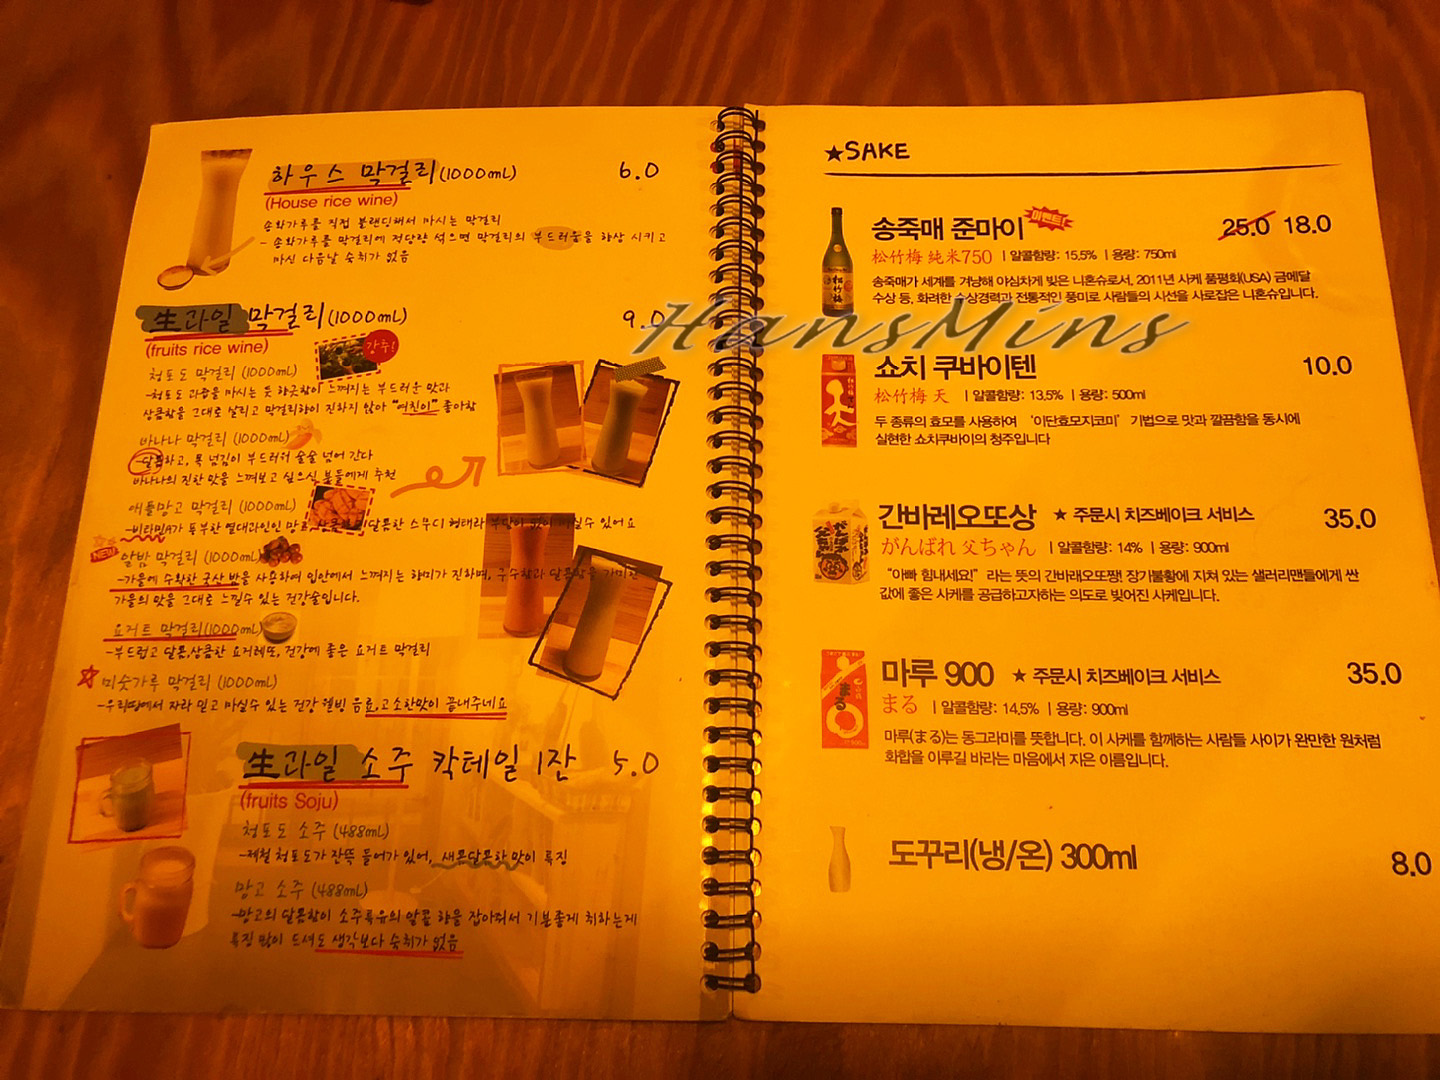 하우스 막걸리(1000mL) 6.0
(House rice wine)
송화가루를 직접 블랜딩해서 마시는 막걸리
- 송화가루를 막걸리에 적당량 섞으면 막걸리의 부드러움을 향상 시키고
마신 다음날 숙취가 없음
生과일 막걸리(1000mL) 9.0
(fruits rice wine)
강추!
청포도 막걸리 (1000mL)
-청포도 과즙을 마시는 듯 향긋함이 느껴지는 부드러운 맛과
상큼함을 그대로 살리고 막걸리향이 진하지 않아 "여친이" 좋아함
바나나 막걸리 (1000mL)
-달콤하고, 목 넘김이 부드러워 술술 넘어 간다
바나나의 진한 맛을 느껴보고 싶으신 분들에게 추천
애플망고 막걸리 (1000mL)
-비타민A가 풍부한 열대과일인 망고, 상큼하고 달콤한 스무디 형태라 부담이 없이 마실수 있어요
NEW 알밤 막걸리 (1000mL)
-가을에 수확한 국산 밤을 사용하여 입안에서 느껴지는 향미가 진하며, 구수함과 달콤함을 가미한
가을의 맛을 그대로 느낄수 있는 건강술입니다.
요거트 막걸리(1000mL)
-부드럽고 달콤,상큼한 요거레또, 건강에 좋은 요거트 막걸리
미숫가루 막걸리 (1000mL)
-우리땅에서 자라 믿고 마실수 있는 건강 웰빙 음료, 고소한맛이 끝내주네요
生과일 소주 칵테일 1잔 5.0
(fruits Soju)
청포도 소주 (488mL)
-제철 청포도가 잔뜩 들어가 있어, 새콤달콤한 맛이 특징
망고 소주 (488mL)
-망고의 달콤함이 소주특유의 알콜 향을 잡아줘서 기분좋게 취하는게
특징 많이 드셔도 생각보다 숙취가 없음
★SAKE
송죽매 준마이 이벤트! 25.0 18.0
松竹梅 純米750 | 알콜함량: 15,5% | 용량: 750ml
송죽매가 세계를 겨냥해 야심차게 빚은 니혼슈로서, 2011년 사케 품평회(USA) 금메달
수상 등, 화려한 수상경력과 전통적인 풍미로 사람들의 시선을 사로잡은 니혼슈입니다.
HansMins
쇼치 쿠바이텐 10.0
松竹梅 天 | 알콜함량: 13,5% | 용량: 500ml
두 종류의 효모를 사용하여 '이단효모지코미' 기법으로 맛과 깔끔함을 동시에
실현한 쇼치쿠바이의 청주입니다
간바레오또상 ★ 주문시 치즈베이크 서비스 35.0
がんばれ 父ちゃん | 알콜함량: 14% | 용량: 900ml
"아빠 힘내세요!" 라는 뜻의 간바래오또짱! 장기불황에 지쳐 있는 샐러리맨들에게 싼
값에 좋은 사케를 공급하고자하는 의도로 빚어진 사케입니다.
마루 900 ★ 주문시 치즈베이크 서비스 35.0
まる | 알콜함량: 14,5% | 용량: 900ml
마루(まる)는 동그라미를 뜻합니다. 이 사케를 함께하는 사람들 사이가 완만한 원처럼
화합을 이루길 바라는 마음에서 지은 이름입니다.
도꾸리(냉/온) 300ml 8.0